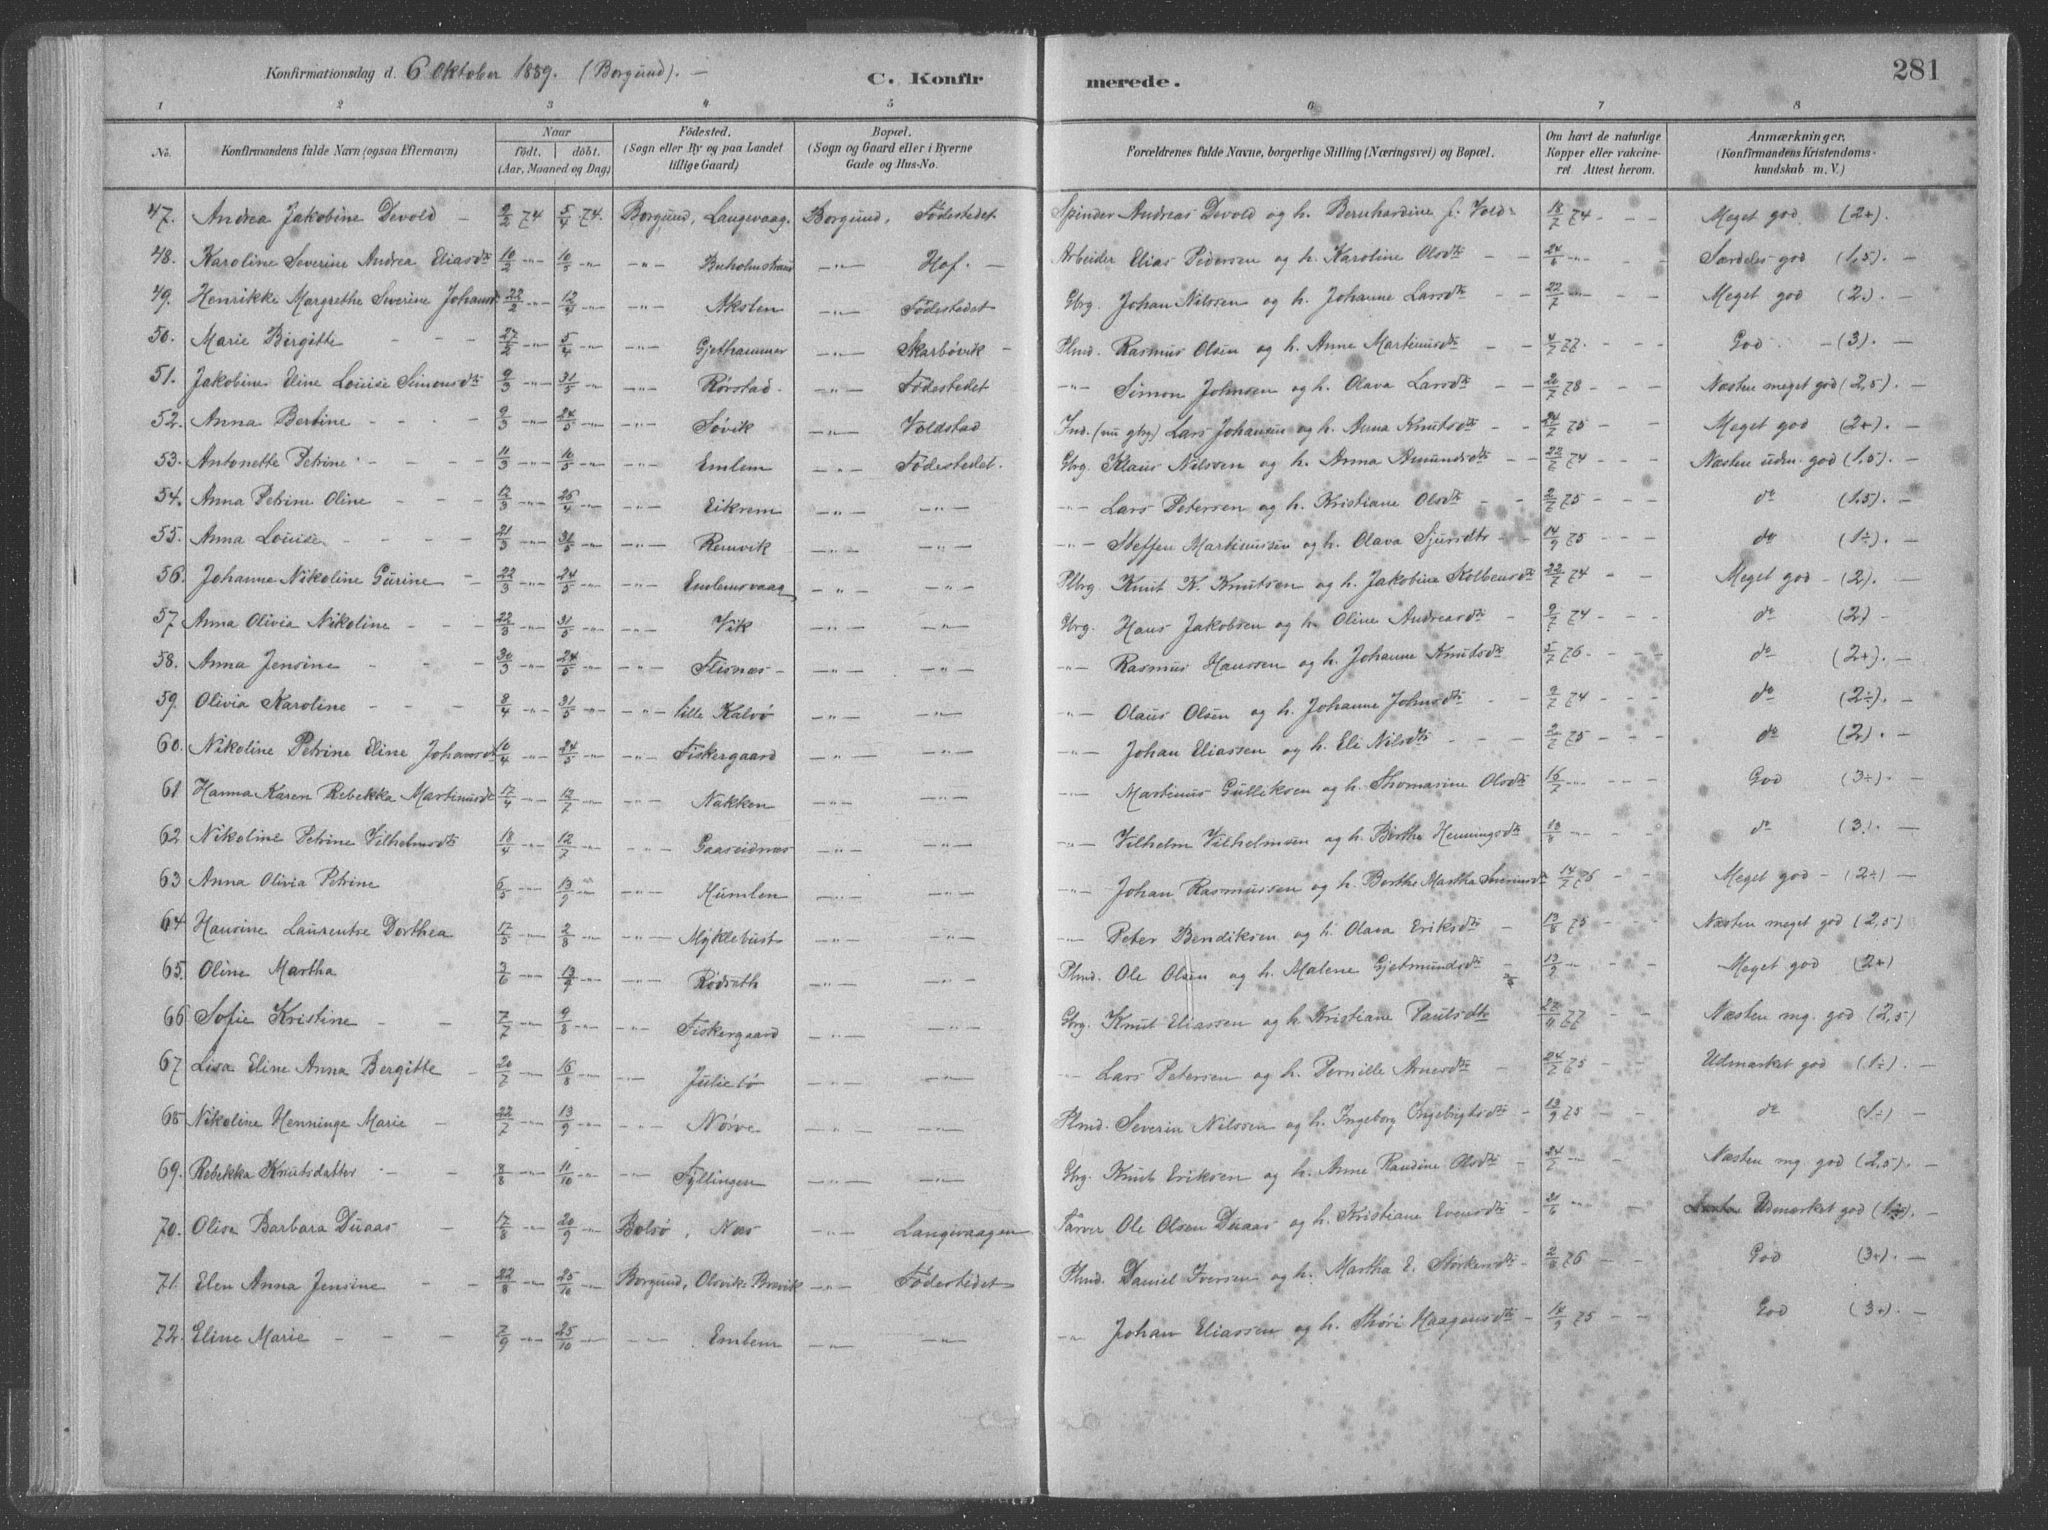 Konfirmationsdag d. 6 Oktober 1889. (Borgund). — C. Konfirmerede. 281
1 2 3 4 5 6 7 8
No. Konfirmandens fulde Navn (ogsaa Efternavn) Naar født. døbt. (Aar, Maaned og Dag) Fødested. (Sogn eller By og paa Landet tillige Gaard) Bopæl. (Sogn og Gaard eller i Byerne Gade og Hus-No. Forældrenes fulde Navne, borgerlige Stilling (Næringsvei) og Bopæl. Om havt de naturlige Kopper eller vakcineret Attest herom. Anmærkninger. (Konfirmandens Kristendomskundskab m. V.)
47. Andrea Jakobine Devold — 9/2 74 5/4 74. Borgund, Langevaag. Borgund, Fødestedet Spinder Andreas Devold og h. Bernhardine f. Vold 18/7 74 - - Meget god (2+).
48. Karoline Severine Andrea Eliasdtr 10/2 -"- 10/5 -"- -"- Buholmstrand -"- Hof. — Arbeider Elias Pedersen og h. Karoline Olsdtr - - 24/6 -"- - - Særdeles god (1,5). —
49. Henrikke Margrethe Severine Johansdtr 22/2 -"- 12/4 -"- -"- Akslen -"- Fødestedet Gbrg. Johan Nilssen og h. Johanne Larsdtr - - 22/7 -"- - - Meget god (2.) —
50. Marie Birgitte - - - 27/2 -"- 5/4 -"- -"- Gjethammer -"- Skarbøvik — Plmd. Rasmus Olsen og h. Anne Martinusdtr - - 4/7 77. - - God - (3). —
51. Jakobine Eline Louise Simonsdtr 9/3 -"- 31/5 -"- -"- Rørstad -"- Fødestedet -"- Simon Johnsen og h. Olava Larsdtr - - 20/7 78 - - Næsten meget god (2,5). —
52. Anna Bertine - - - 9/3 -"- 24/5 -"- -"- Søvik -"- Voldstad Ind. (nu gbrg) Lars Johansen og h. Anna Knutsdtr - 24/7 75 - - Meget god (2+) —
53. Antonette Petrine - - - 11/3 -"- 10/5 -"- -"- Emlem -"- Fødestedet. Gbrg. Klaus Nilssen og h. Anna Amundsdtr - - 22/7 74 - - Næsten udm. god (1,5). —
54. Anna Petrine Oline - - - 12/3 -"- 26/4 -"- -"- Eikrem -"- -"- -"- Lars Petersen og h. Kristiane Olsdtr - - 2/7 75 - - do (1,5). —
55. Anna Louise - - - 21/3 -"- 31/5 -"- -"- Remvik -"- -"- -"- Steffen Martinussen og h. Olava Sjursdtr - 14/9 75 - - do (1÷). —
56. Johanne Nikoline Gurine - 22/3 -"- 24/5 -"- -"- Emlemsvaag -"- -"- Plbrg. Knut K. Knutsen og h. Jakobine Kolbensdtr 22/7 74 - - Meget god - (2). —
57. Anna Olivia Nikoline - - 22/3 -"- 31/5 -"- -"- Vik -"- -"- Gbrg. Hans Jakobsen og h. Oline Andreasdtr - 9/7 74 - - do (2) —
58. Anna Jensine - - - 30/3 -"- 24/5 -"- -"- Flisnæs - -"- -"- -"- Rasmus Hanssen og h. Johanne Knutsdtr 5/7 76 - - do (2+). —
59. Olivia Karoline - - - 8/4 -"- 31/5 -"- -"- lille Kalvø -"- -"- -"- Olaus Olsen og h. Johanne Johnsdtr - - 9/7 74 - - do (2÷). —
60. Nikoline Petrine Eline Johansdtr 10/4 -"- 24/5 -"- -"- Fiskergaard -"- -"- -"- Johan Eliassen og h. Eli Nilsdtr - - - 2/7 75 - - do (2). —
61. Hanna Karen Rebekka Martinusdtr 17/4 -"- 12/7 -"- -"- Nakken -"- -"- -"- Martinus Gulliksen og h. Thomasine Olsdtr 16/7 -"- - - God (3÷). —
62 Nikoline Petrine Vilhelmsdtr 18/4 -"- 12/7 -"- -"- Gaaseidnæs -"- -"- -"- Vilhelm Vilhelmsen og h. Berthe Henningsdtr 13/8 -"- - - do (3). —
63 Anna Olivia Petrine 6/5 -"- 13/9 -"- -"- Humlen -"- -"- -"- Johan Rasmussen og h. Berthe Martha 14/7 76 - - Meget god - (2÷) —
64 Hansine Laurentse Dorthea 17/5 -"- 2/8 -"- -"- Myklebust -"- -"- -"- Peter Bendiksen og h. Olava Eriksdtr - 13/8 75 - - Næsten meget god (2,5)
65. Oline Martha 3/6 -"- 13/9 -"- -"- Rødseth -"- -"- Plmd. Ole Olsen og h. Malene Gjetmundsdtr - 13/9 - - - Meget god (2+)
66 Sofie Kristine - - 7/7 -"- 9/8 -"- -"- Fiskergaard -"- -"- Gbrg. Knut Eliassen og h. Kristiane Paulsdtr 27/11 77 - - Næsten mg. god (2,5)
67 Lisa Eline Anna Bergitte - 20/7 -"- 16/8 -"- -"- Julie tø -"- -"- -"- Lars Petersen og h. Pernille Arnesdtr - 24/7 75 - - Udmærket god (1÷) —
68 Nikoline Henninge Marie - 22/7 -"- 13/9 -"- -"- Nørve -"- -"- Plmd. Severin Nilssen og h. Ingeborg Ingebrigtsdtr - 13/9 75 - - do (1÷) —
69. Rebekka Knutsdatter - - 8/8 -"- 11/10 -"- -"- Fyllingen -"- -"- Gbrg. Knut Eriksen og h. Anne Randine Olsdtr - 24/7 -"- - Næsten mg. god (2,5). —
70. Olise Barbara Duaas - 17/8 -"- 20/9 -"- Bolsø, Næs -"- Langevaagen Farver Ole Olsen Duaas og h. Kristiane Evensdtr - 21/6 -"- - Udmærket god (1÷). —
71. Elen Anna Jensine - - 22/8 -"- 25/10 -"- Borgund, Olsvik Brevik -"- Fødestedet Plmd. Daniel Iversen og h. Martha E. Størkersdtr - 2/8 76 - - God (3+) —
72. Eline Marie - - - 7/9 -"- 25/10 -"- -"- Emblem -"- -"- -"- Johan Eliassen og h. Thøri Haagensdtr - 14/9 75 - - God (3+). —